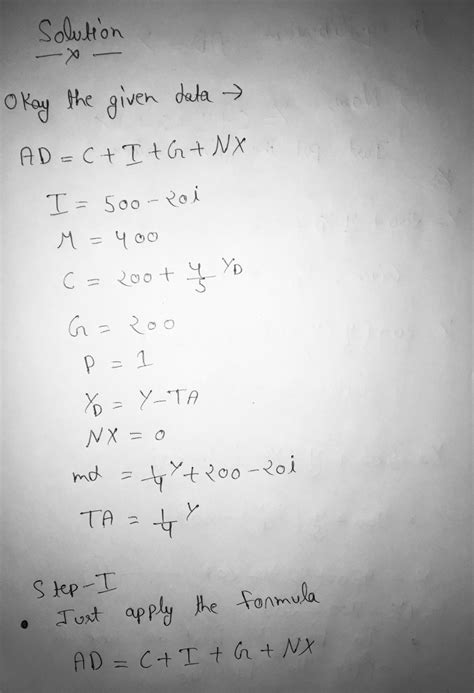 Solution
Okay the given data →
AD = C + I + G + NX
I = 500 - 20i
M = 400
C = 200 + 4/5 YD
G = 200
P = 1
YD = Y - TA
NX = 0
md = 1/4 Y + 200 - 20i
TA = 1/4 Y
Step-I
• Just apply the formula
AD = C + I + G + NX